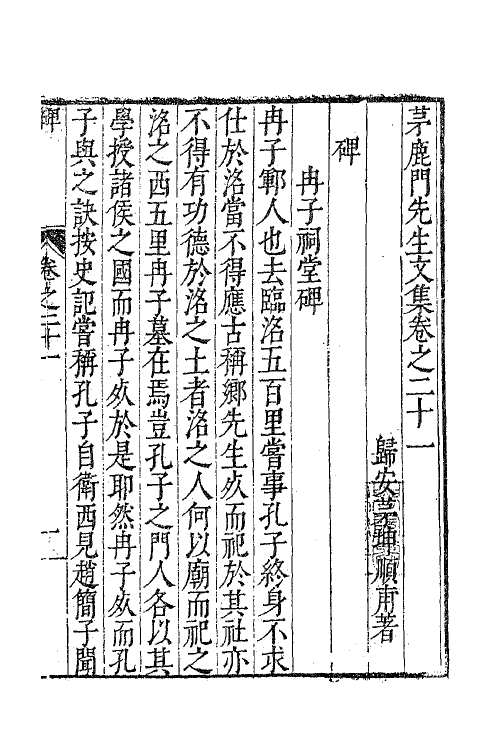 茅鹿門先生文集卷之二十一
歸安茅坤順甫著
碑
冉子祠堂碑
冉子鄆人也去臨洛五百里嘗事孔子終身不求
仕於洛當不得應古稱鄉先生歿而祀於其社亦
不得有功德於洛之土者洛之人何以廟而祀之
洛之西五里冉子墓在焉豈孔子之門人各以其
學授諸侯之國而冉子歿於是耶然冉子歿而孔
子與之訣按史記嘗稱孔子自衛西見趙簡子聞
碑
卷之二十一
一